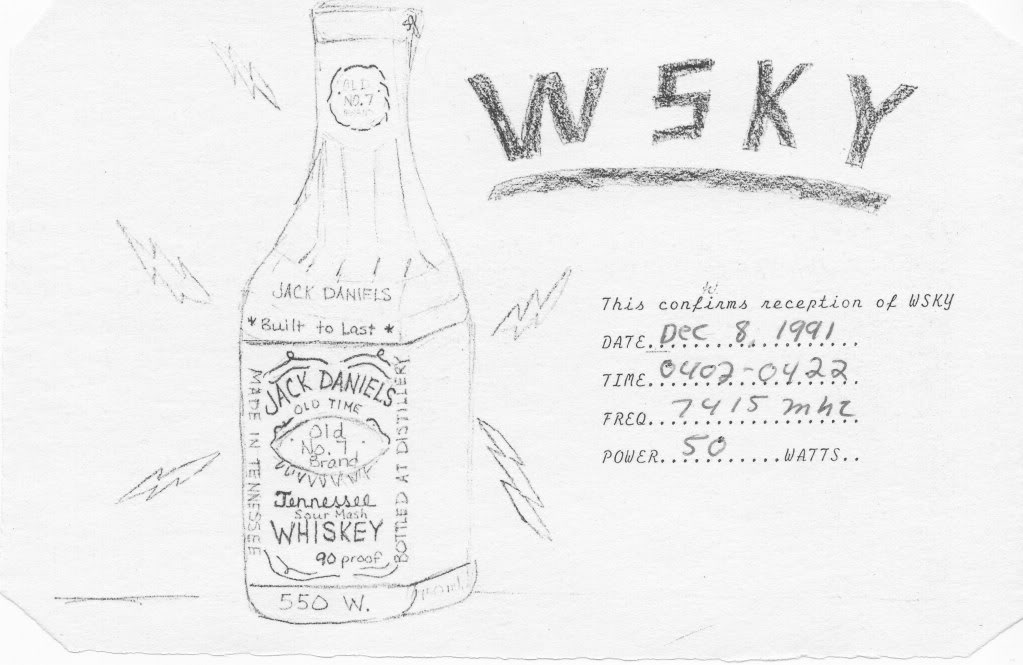 OLD
NO. 7
WSKY
JACK DANIELS
* Built to Last *
MADE IN TENNESSEE
JACK DANIELS
OLD TIME
Old
No. 7
Brand
Tennessee
Sour Mash
WHISKEY
90 proof
BOTTLED AT DISTILLERY
550 W.
This confirms reception of WSKY
DATE..Dec 8, 1991
TIME..0402-0422
FREQ...7415 mhz
POWER...50......WATTS..